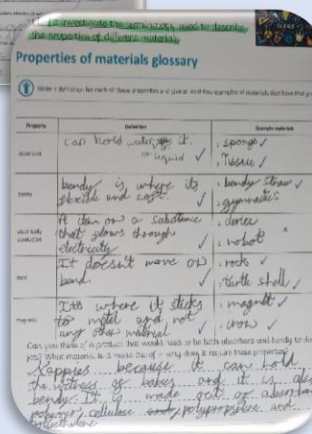 to investigate the terminology used to describe
the properties of different materials.
Properties of materials glossary
Write a definition for each of these properties and give at least two examples of materials that have that
Property
Definition
Example materials
absorbent
can hold water in it.
or liquid
sponge
tissue
bendy
bendy is where its
flexible and soft.
bendy straw
gymnastics
electrically
conductive
A item or a substance
that flows through
electricity
device
robot
hard
It doesn't move or
bend.
rocks
turtle shell
magnetic
It's where it sticks
to metal and not
any other material
magnet
iron
Can you think of a product that would need to be both absorbent and bendy to do
job? What material is it made out of – why does it require these properties?
Nappies because it can hold
the wetness of babies and it is also
bendy. It is made out of absorbent
polymer, cellulose, polypropylene and